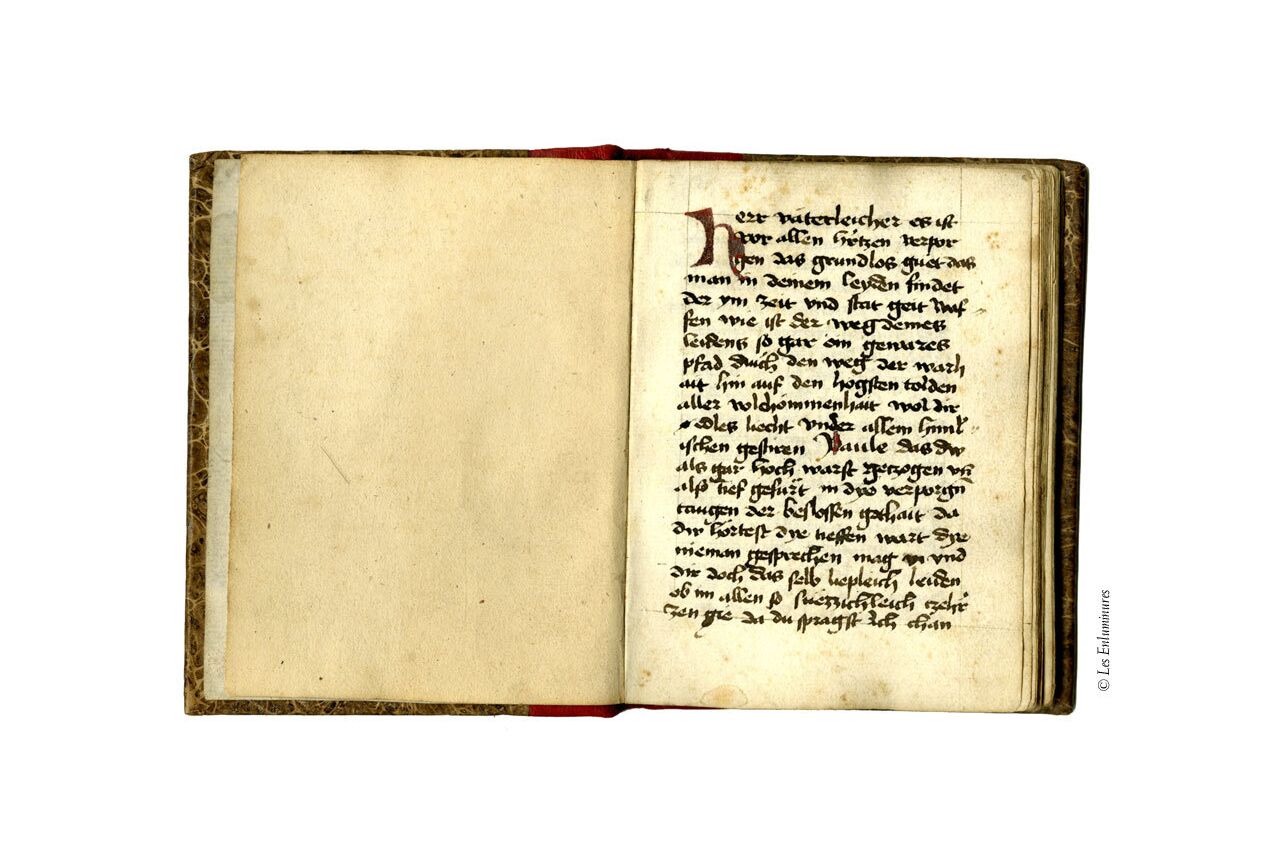 Herr väterleicher es ist
vor allen hertzen verpor
gen das grundlos guet das
man in deinem leyden findet
der ym zeit vnd stat geit Waf
fen wie ist der weg deines
leidens so gar ein gewares
pfad durch den weg der warh
ait hin auf den hogsten tolden
aller volchomenhait wol dir
edles liecht vnder allem himl
ischen gestiren Paule das dw
als gar hoch warst getzogen vn̄
alss tief gefürt in dye verporgn̄
taugen der beslossen gothait da
dw hortest dye tieffen wart dye
nieman gesprechen mag vnd
dir doch das selb liepleich leiden
ob im allen so
zen gie da du spragst Ich chan
© Les Enluminures